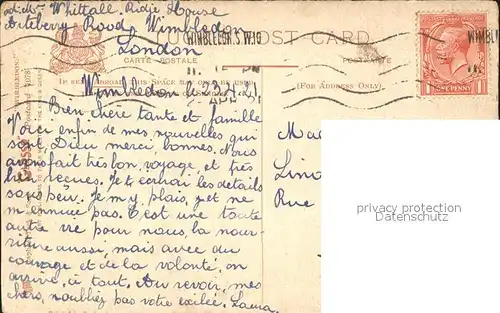 Whittall. Ridge House
Road, Wimbledon
London
WIMBLEDON S.W.19
POST CARD
WIMBL
CARTE POSTALE
POSTKARTE
(FOR ADDRESS ONLY)
ONE PENNY
Wimbledon le 23.4.21
Bien chère tante et famille
Voici enfin de mes nouvelles qui
sont, Dieu merci, bonnes. Nous
avons fait très bon voyage, et très
bien reçues. Je t'écrirai les détails
sous peu. Je m'y plais, et ne
m'ennuie pas. C'est une toute
autre vie pour nous, la nour-
riture aussi, mais avec du
courage et de la volonté, on
arrive à tout. Au revoir, mes
chers, n'oubliez pas votre exilée. Laura.
Ma
Lino
Rue
Privacy protection
Datenschutz